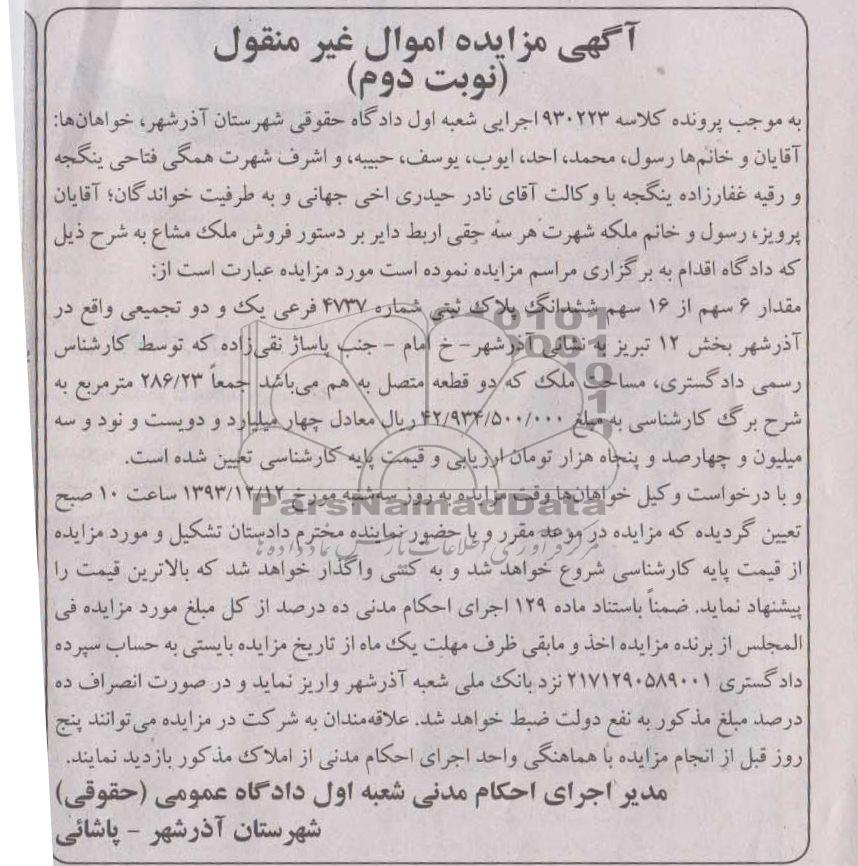 آگهی مزایده اموال غیر منقول
(نوبت دوم)
به موجب پرونده کلاسه ۹۳۰۲۲۳ اجرایی شعبه اول دادگاه حقوقی شهرستان آذرشهر، خواهان‌ها:
آقایان و خانم‌ها رسول، محمد، احد، ایوب، یوسف، حبیبه، و اشرف شهرت همگی فتاحی ینگجه
و رقیه غفارزاده ینگجه با وکالت آقای نادر حیدری اخی جهانی و به طرفیت خواندگان؛ آقایان
پرویز، رسول و خانم ملکه شهرت هر سه حقی اربط دایر بر دستور فروش ملک مشاع به شرح ذیل
که دادگاه اقدام به برگزاری مراسم مزایده نموده است مورد مزایده عبارت است از:
مقدار ۶ سهم از ۱۶ سهم ششدانگ پلاک ثبتی شماره ۴۷۳۷ فرعی یک و دو تجمیعی واقع در
آذرشهر بخش ۱۲ تبریز به نشانی آذرشهر- خ امام - جنب پاساژ نقی‌زاده که توسط کارشناس
رسمی دادگستری، مساحت ملک که دو قطعه متصل به هم می‌باشد جمعاً ۲۸۶/۲۳ مترمربع به
شرح برگ کارشناسی به مبلغ ۴۲/۹۳۴/۵۰۰/۰۰۰ ریال معادل چهار میلیارد و دویست و نود و سه
میلیون و چهارصد و پنجاه هزار تومان ارزیابی و قیمت پایه کارشناسی تعیین شده است.
و با درخواست وکیل خواهان‌ها وقت مزایده به روز سه‌شنبه مورخ ۱۳۹۳/۱۲/۱۲ ساعت ۱۰ صبح
تعیین گردیده که مزایده در موعد مقرر و با حضور نماینده محترم دادستان تشکیل و مورد مزایده
از قیمت پایه کارشناسی شروع خواهد شد و به کسی واگذار خواهد شد که بالاترین قیمت را
پیشنهاد نماید. ضمناً باستناد ماده ۱۲۹ اجرای احکام مدنی ده درصد از کل مبلغ مورد مزایده فی
المجلس از برنده مزایده اخذ و مابقی ظرف مهلت یک ماه از تاریخ مزایده بایستی به حساب سپرده
دادگستری ۲۱۷۱۲۹۰۵۸۹۰۰۱ نزد بانک ملی شعبه آذرشهر واریز نماید و در صورت انصراف ده
درصد مبلغ مذکور به نفع دولت ضبط خواهد شد. علاقه‌مندان به شرکت در مزایده می‌توانند پنج
روز قبل از انجام مزایده با هماهنگی واحد اجرای احکام مدنی از املاک مذکور بازدید نمایند.
مدیر اجرای احکام مدنی شعبه اول دادگاه عمومی (حقوقی)
شهرستان آذرشهر - پاشائی
ParsNamadData